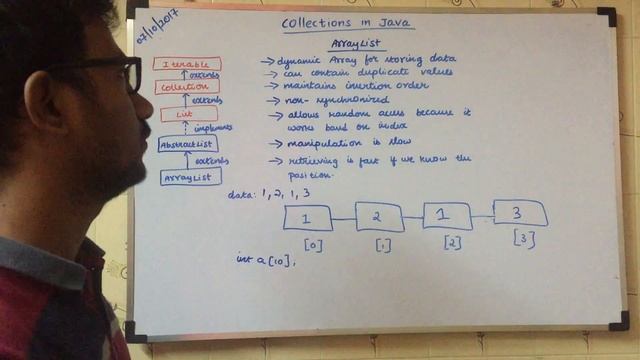 07/10/2017
Collections in Java
ArrayList
Iterable
extends
Collection
extends
List
implements
AbstractList
extends
ArrayList
→ dynamic Array for storing data
→ can contain duplicate values
→ maintains insertion order
→ non-synchronized
→ allows random access because it
works based on index
→ manipulation is slow
→ retrieving is fast if we know the
position.
data: 1, 2, 1, 3
1 2 1 3
[0] [1] [2] [3]
int a[10];